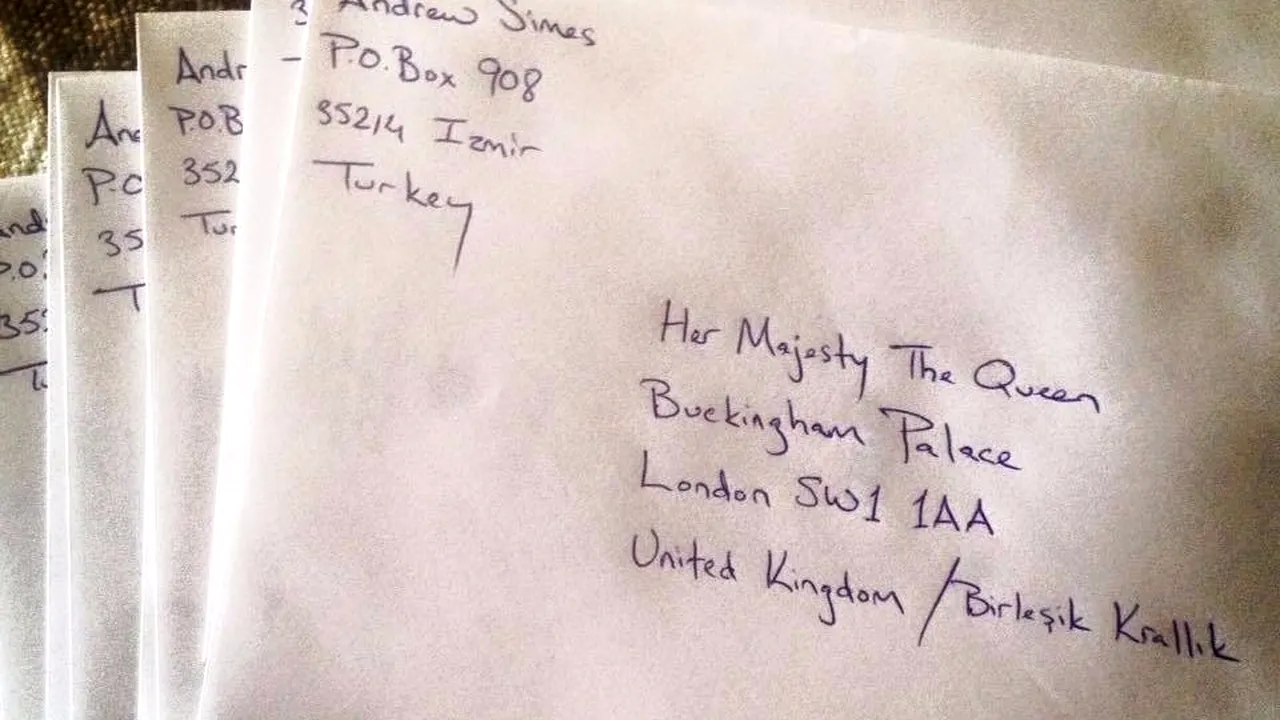 Andrew Simes
P.O. Box 908
35214 Izmir
Turkey
Her Majesty The Queen
Buckingham Palace
London SW1 1AA
United Kingdom / Birleşik Krallık
Andr
P.O.B
352
Tur
And
P.O
35
T
and
P.O.
35
T